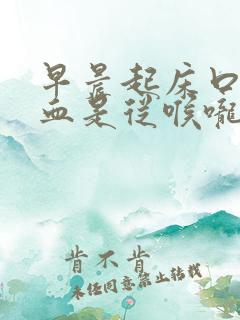 早晨起床口
血是从喉咙
肯不肯
未经同意禁止转载